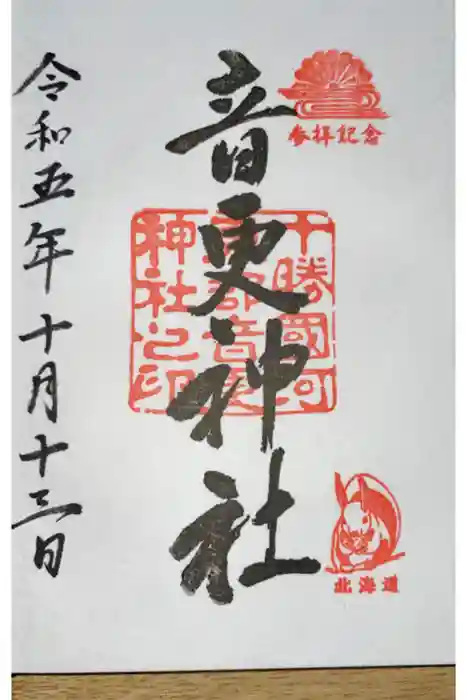 参拝記念
音更神社
十勝國河
東郡音更
神社之印
北海道
令和五年十月十三日